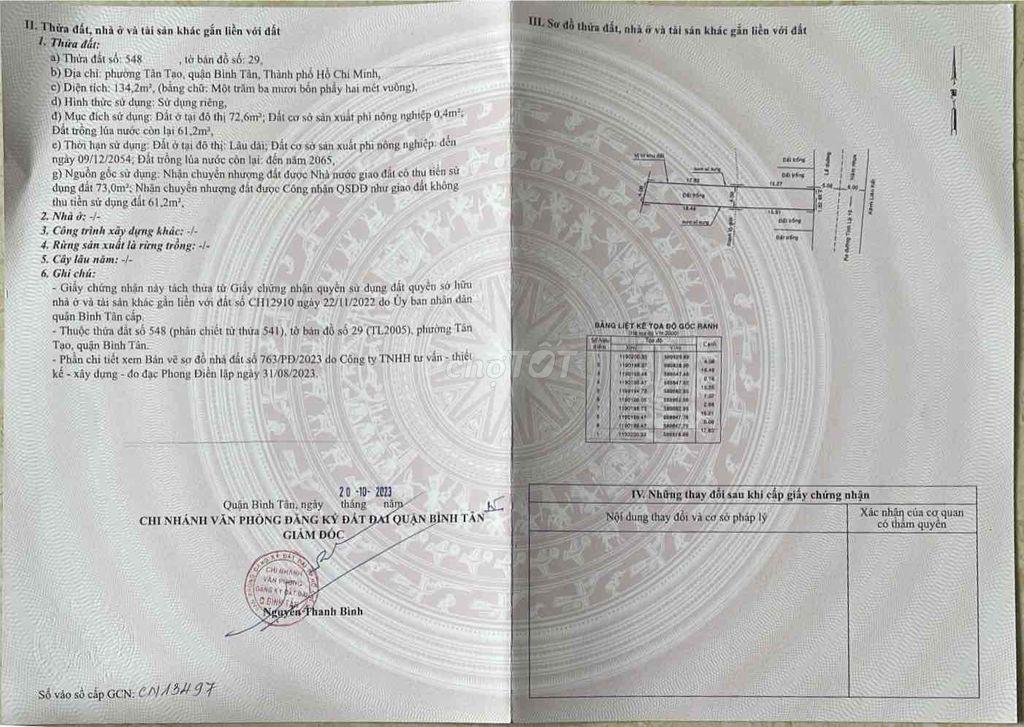 II. Thửa đất, nhà ở và tài sản khác gắn liền với đất
1. Thửa đất:
a) Thửa đất số: 548 , tờ bản đồ số: 29,
b) Địa chỉ: phường Tân Tạo, quận Bình Tân, Thành phố Hồ Chí Minh,
c) Diện tích: 134,2m², (bằng chữ: Một trăm ba mươi bốn phẩy hai mét vuông),
d) Hình thức sử dụng: Sử dụng riêng,
đ) Mục đích sử dụng: Đất ở tại đô thị 72,6m²; Đất cơ sở sản xuất phi nông nghiệp 0,4m²;
Đất trồng lúa nước còn lại 61,2m²,
e) Thời hạn sử dụng: Đất ở tại đô thị: Lâu dài; Đất cơ sở sản xuất phi nông nghiệp: đến
ngày 09/12/2054; Đất trồng lúa nước còn lại: đến năm 2065,
g) Nguồn gốc sử dụng: Nhận chuyển nhượng đất được Nhà nước giao đất có thu tiền sử
dụng đất 73,0m²; Nhận chuyển nhượng đất được Công nhận QSDĐ như giao đất không
thu tiền sử dụng đất 61,2m²,
2. Nhà ở: -/-
3. Công trình xây dựng khác: -/-
4. Rừng sản xuất là rừng trồng: -/-
5. Cây lâu năm: -/-
6. Ghi chú:
- Giấy chứng nhận này tách thửa từ Giấy chứng nhận quyền sử dụng đất quyền sở hữu
nhà ở và tài sản khác gắn liền với đất số CH12910 ngày 22/11/2022 do Ủy ban nhân dân
quận Bình Tân cấp.
- Thuộc thửa đất số 548 (phân chiết từ thửa 541), tờ bản đồ số 29 (TL2005), phường Tân
Tạo, quận Bình Tân.
- Phần chi tiết xem Bản vẽ sơ đồ nhà đất số 763/PĐ/2023 do Công ty TNHH tư vấn - thiết
kế - xây dựng - đo đạc Phong Điền lập ngày 31/08/2023.
20-10-2023
Quận Bình Tân, ngày tháng năm
CHI NHÁNH VĂN PHÒNG ĐĂNG KÝ ĐẤT ĐAI QUẬN BÌNH TÂN
GIÁM ĐỐC
CHI NHÁNH
VĂN PHÒNG
ĐĂNG KÝ ĐẤT ĐAI
Q.BÌNH TÂN
Nguyễn Thanh Bình
Số vào sổ cấp GCN: CN13497
III. Sơ đồ thửa đất, nhà ở và tài sản khác gắn liền với đất
Đất trống
Đất trống
17.82
15.27
Đất trống
18.48
15.51
Đất trống
Đất trống
5.08
6.00
Lề đường
Ra đường Tỉnh Lộ 10
Kênh Liên Xã
BẢNG LIỆT KÊ TỌA ĐỘ GÓC RANH
(Hệ tọa độ VN-2000)
Số hiệu điểm
Tọa độ
X(m)
Y(m)
Cạnh
chợTỐT
IV. Những thay đổi sau khi cấp giấy chứng nhận
Nội dung thay đổi và cơ sở pháp lý
Xác nhận của cơ quan
có thẩm quyền